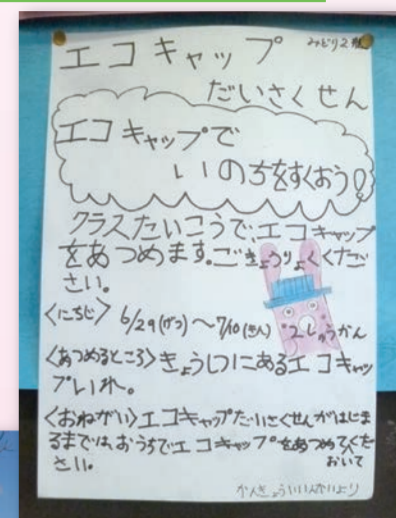 エコキャップ
みどり2
だいさくせん
エコキャップで
いのちをすくおう!
クラスたいこうで、エコキャップ
をあつめます。ごきょうりょくくだ
さい。
<にちじ> 6/29(げつ)〜7/10(きん) 2しゅうかん
<あつめるところ>きょうしつにあるエコキャッ
プいれ。
<おねがい>エコキャップだいさくせんがはじま
るまでは、おうちでエコキャップをあつめてくだ
さい。
おいて
かんきょういいんかいより